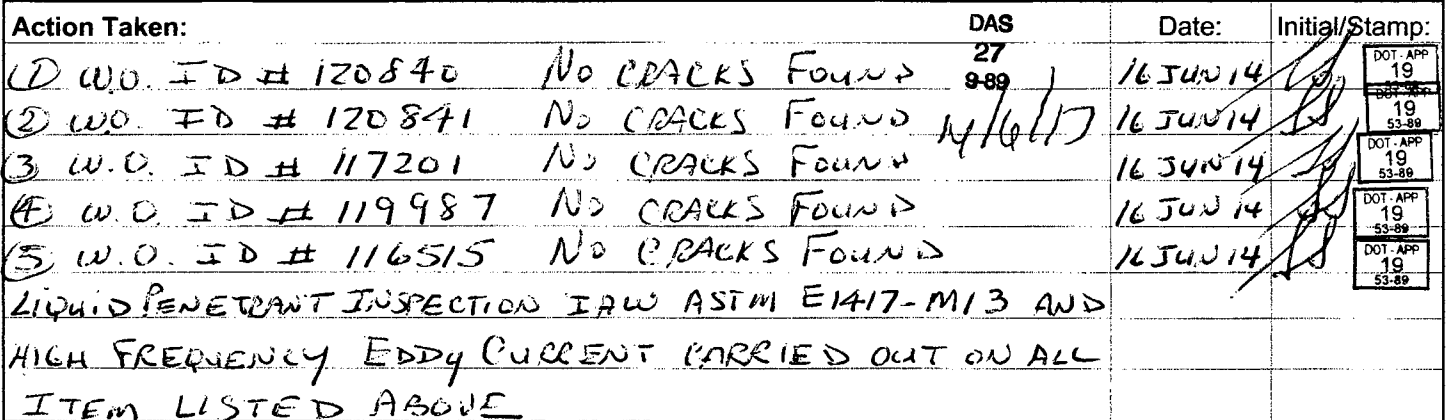 Action Taken: DAS Date: Initial/Stamp:
① W.O. ID # 120840 NO CRACKS FOUND 27 9-89 16 JUN 14 DOT-APP 19
② W.O. ID # 120841 NO CRACKS FOUND 16 JUN 14 19 53-89
③ W.O. ID # 117201 NO CRACKS FOUND 16 JUN 14 DOT-APP 19 53-89
④ W.O. ID # 119987 NO CRACKS FOUND 16 JUN 14 DOT-APP 19 53-89
⑤ W.O. ID # 116515 NO CRACKS FOUND 16 JUN 14 DOT-APP 19 53-89
LIQUID PENETRANT INSPECTION IAW ASTM E1417-M13 AND
HIGH FREQUENCY EDDY CURRENT CARRIED OUT ON ALL
ITEM LISTED ABOVE